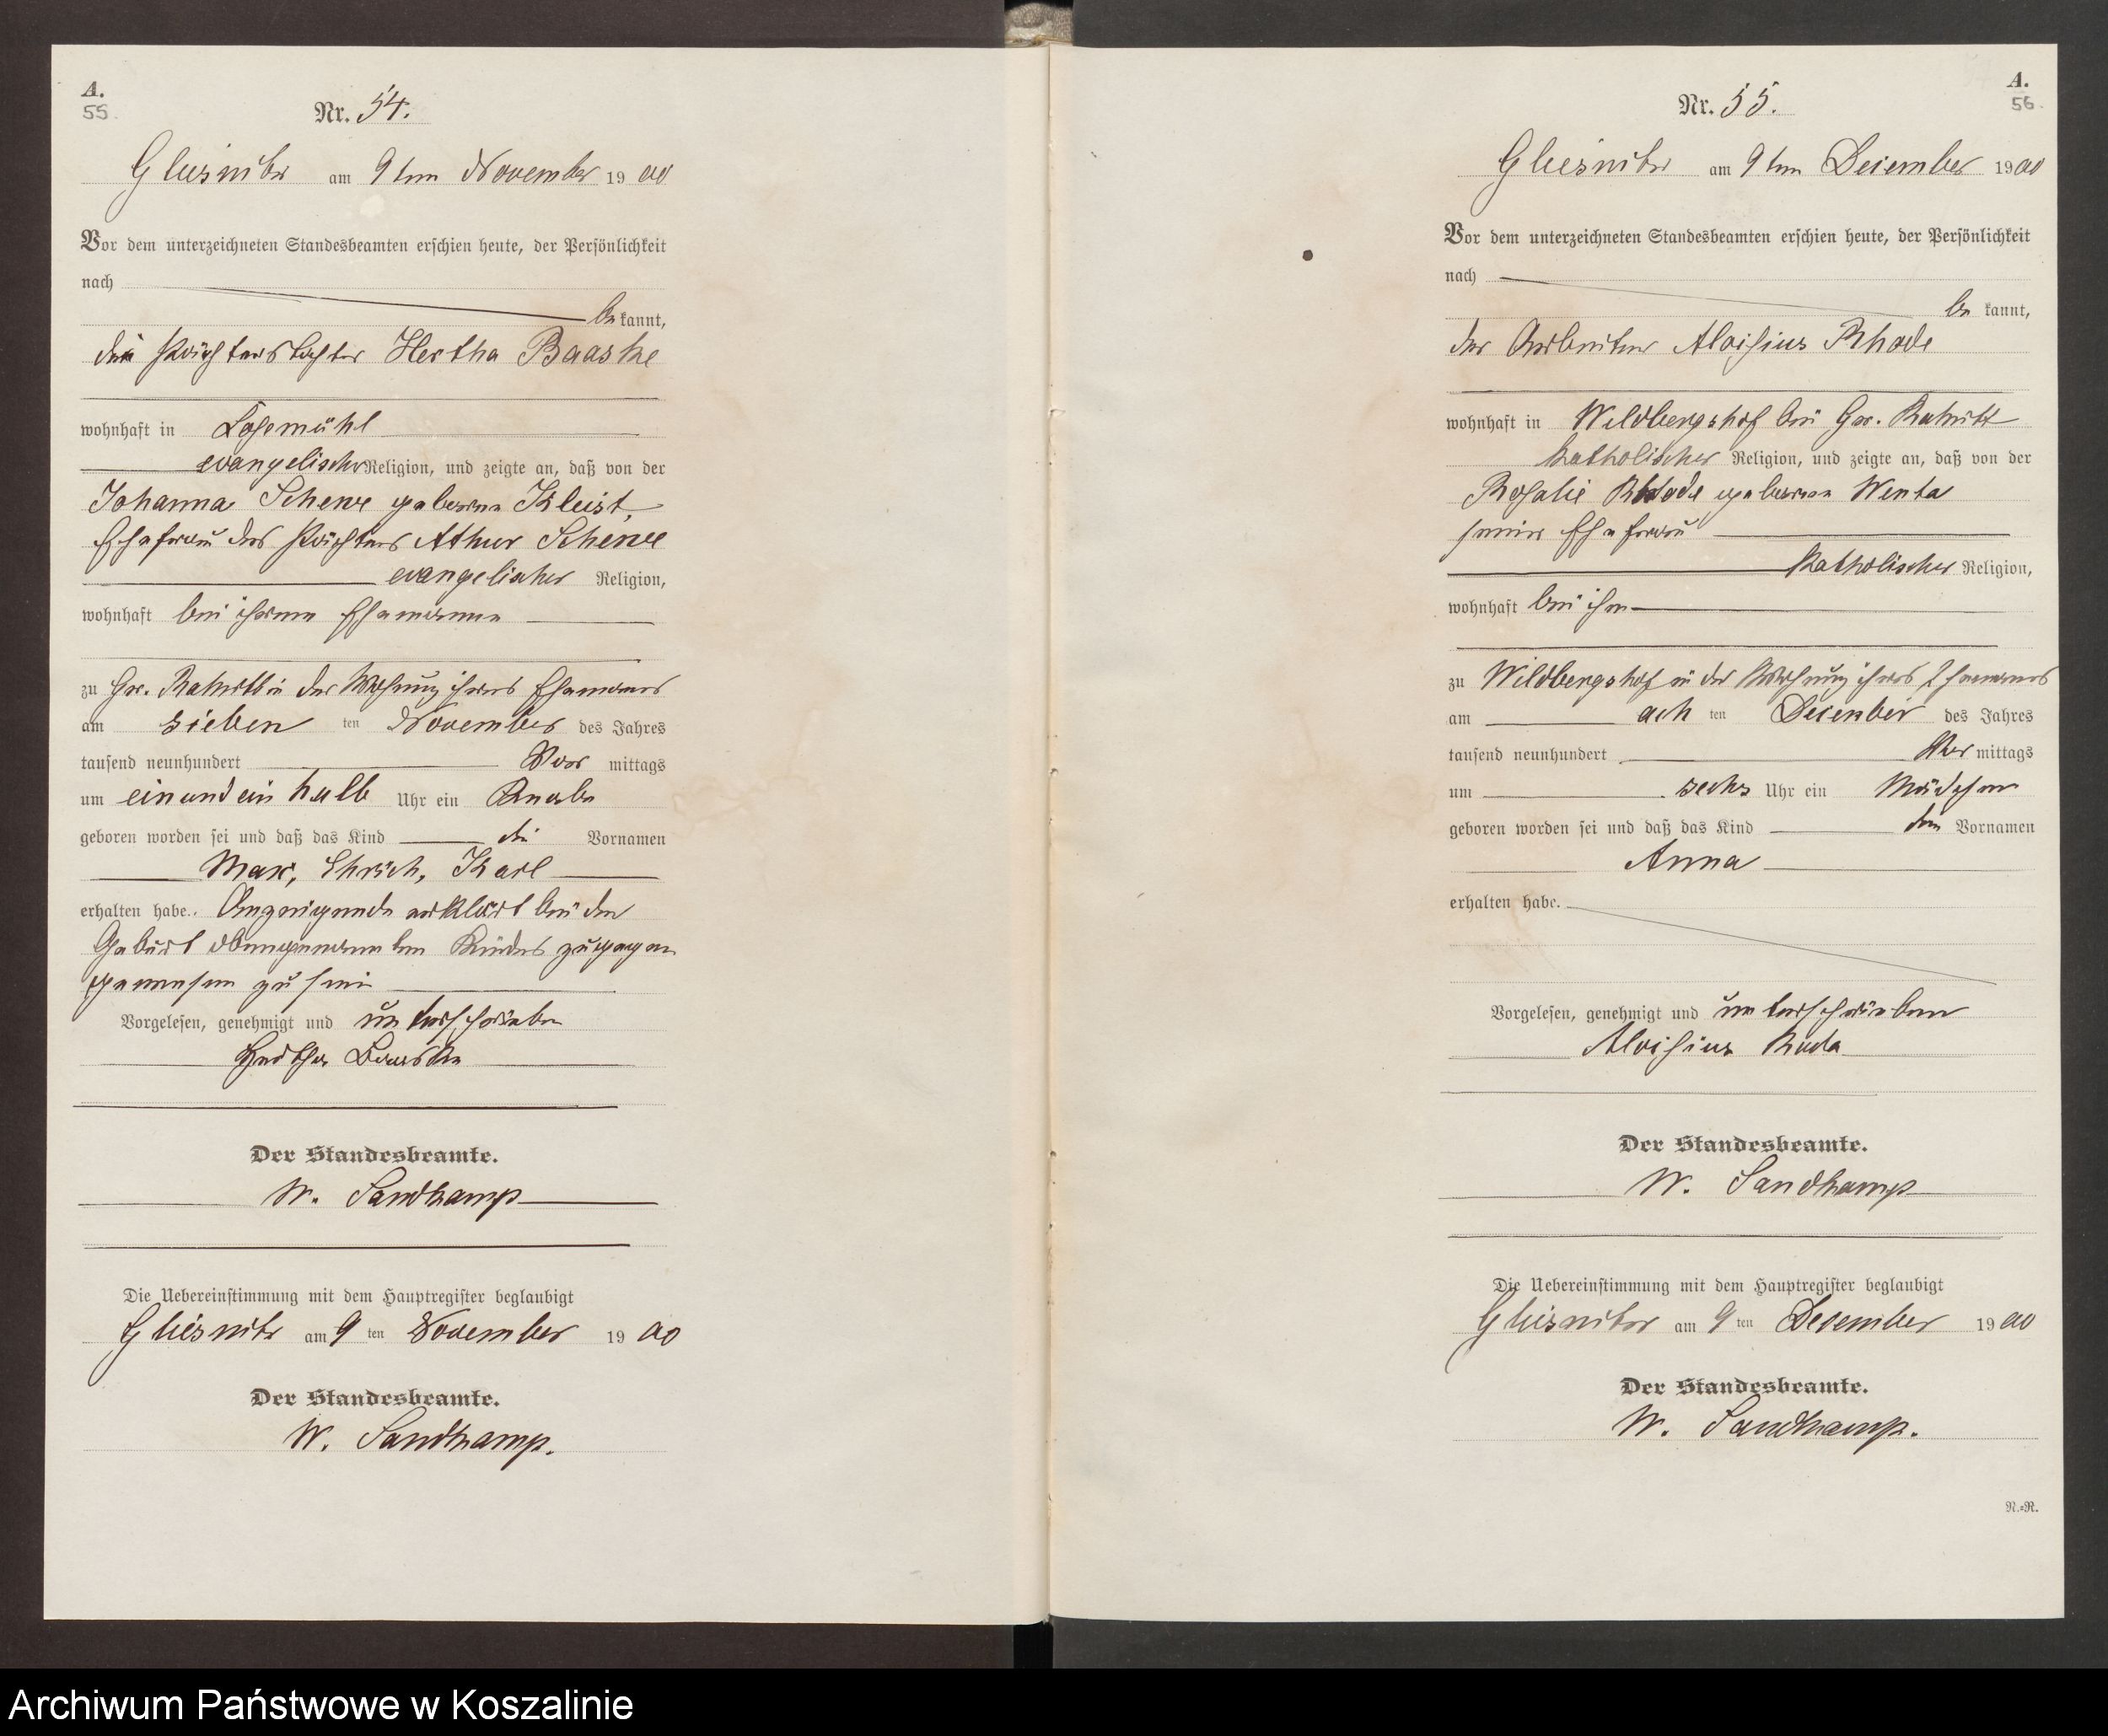 A.
55.
Nr. 54.
Gliesnitz am 9ten November 1900
Vor dem unterzeichneten Standesbeamten erschien heute, der Persönlichkeit
nach
bekannt,
die Pächterstochter Hertha Baaske
wohnhaft in Logemühl
evangelischer Religion, und zeigte an, daß von der
Johanna Scheve geborene Kleist,
Ehefrau des Pächters Athur Scheve
evangelischer Religion,
wohnhaft bei ihrem Ehemanne
zu Gr. Rakitt in der Wohnung ihres Ehemannes
am sieben ten November des Jahres
tausend neunhundert Vor mittags
um einundeinhalb Uhr ein Knabe
geboren worden sei und daß das Kind die Vornamen
Max, Ehrich, Karl
erhalten habe. Anzeigende erklärt bei der
Geburt obengenannten Kindes zugegen
gewesen zu sein
Vorgelesen, genehmigt und unterschrieben
Hertha Baaske
Der Standesbeamte.
W. Sandkamp
Die Uebereinstimmung mit dem Hauptregister beglaubigt
Gliesnitz am 9 ten November 1900
Der Standesbeamte.
W. Sandkamp.
A.
56.
Nr. 55.
Gliesnitz am 9ten December 1900
Vor dem unterzeichneten Standesbeamten erschien heute, der Persönlichkeit
nach
bekannt,
der Arbeiter Aloisius Rhode
wohnhaft in Wildbergshof bei Gr. Rakitt
katholischer Religion, und zeigte an, daß von der
Rosalie Rhode geborene Wenta
seiner Ehefrau
katholischer Religion,
wohnhaft bei ihm
zu Wildbergshof in der Wohnung ihres Ehemannes
am ach ten December des Jahres
tausend neunhundert Vor mittags
um sechs Uhr ein Mädchen
geboren worden sei und daß das Kind den Vornamen
Anna
erhalten habe.
Vorgelesen, genehmigt und unterschrieben
Aloisius Roda
Der Standesbeamte.
W. Sandkamp
Die Uebereinstimmung mit dem Hauptregister beglaubigt
Gliesnitz am 9 ten December 1900
Der Standesbeamte.
W. Sandkamp.
N.=R.
Archiwum Państwowe w Koszalinie